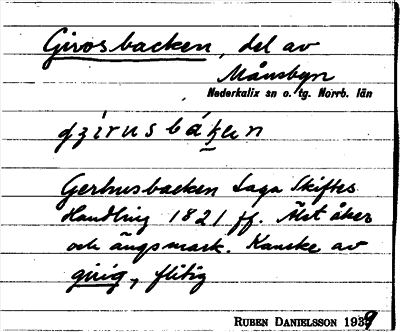 Girosbacken, del av
Månsbyn
Nederkalix sn o. tg. Norrb. län
Gerhusbacken Laga Skiftes
Handling 1821 ff. Äst åker
och ängsmark. Kanske av
girig, flitig
RUBEN DANIELSSON 1939